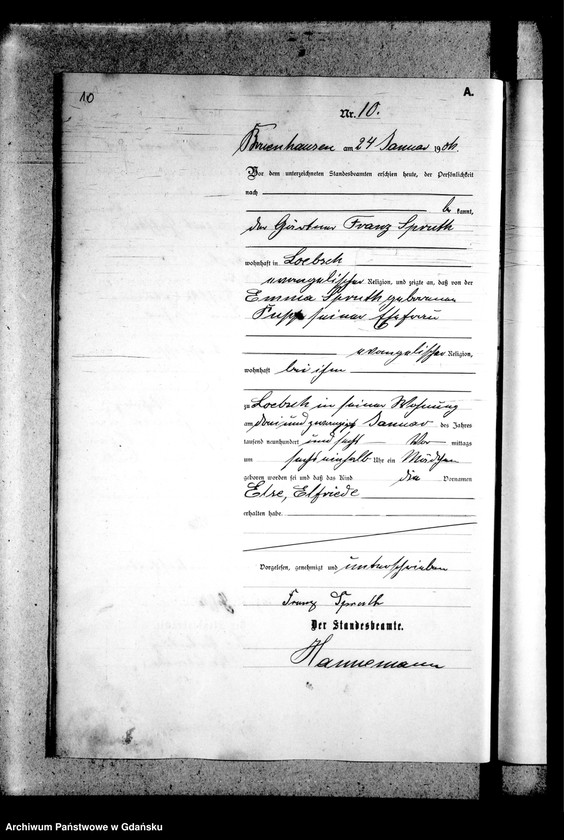 10
A.
Nr. 10.
am 24 Januar 1906.
Vor dem unterzeichneten Standesbeamten erschien heute, der Persönlichkeit
nach
be kannt,
der Gärtner Franz Spruth
wohnhaft in Loebsch
evangelischer Religion, und zeigte an, daß von der
Emma Spruth geborenen
seiner Ehefrau
evangelischer Religion,
wohnhaft bei ihm
zu Loebsch in seiner Wohnung
am drei und zwanzigst Januar des Jahres
tausend neunhundert und sechs Vor mittags
um sechs einhalb Uhr ein Mädchen
geboren worden sei und daß das Kind die Vornamen
Else, Elfriede
erhalten habe.
Vorgelesen, genehmigt und unterschrieben
Franz Spruth
Der Standesbeamte.
Hannemann
Archiwum Państwowe w Gdańsku